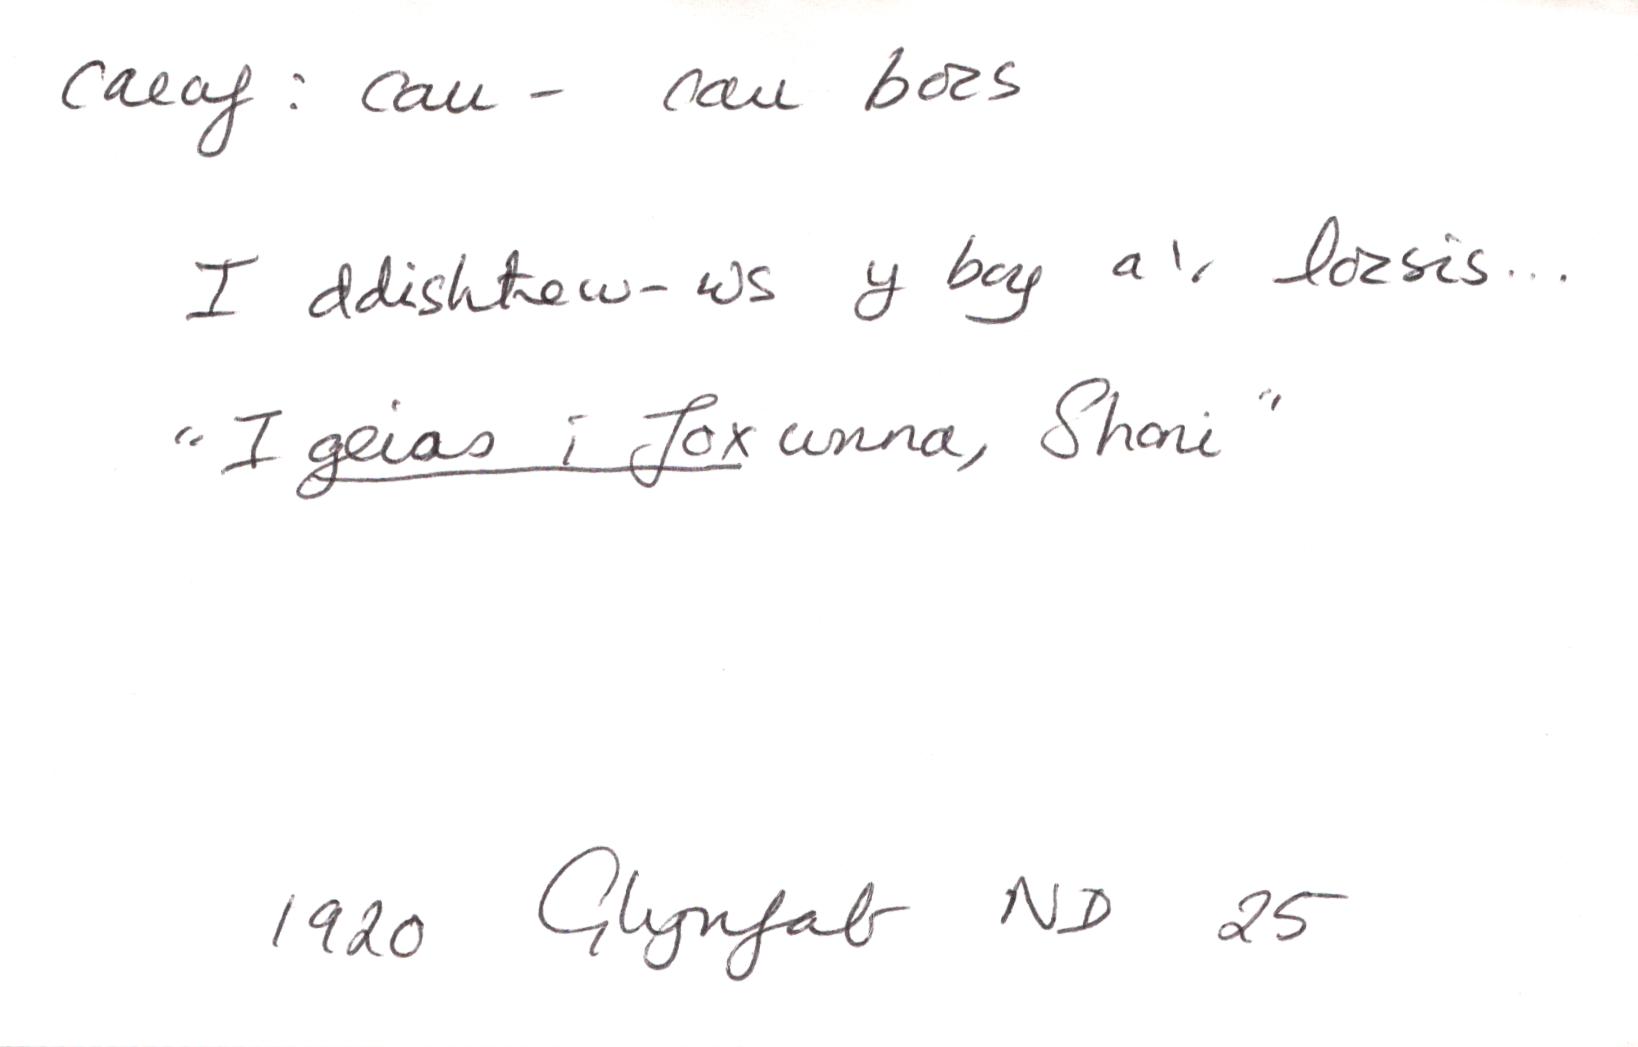 caeaf: cau - cau bocs
I ddishtrew-ws y boy a'r locsis...
"I geias i focs unna, Shoni"
1920 Glynfab ND 25